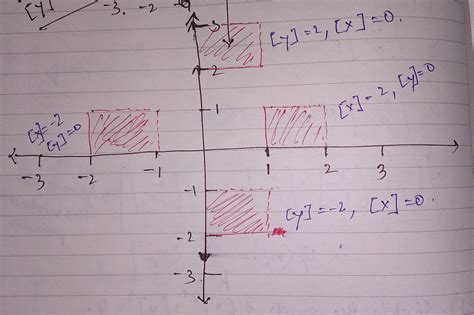 [y]
-3. -2
3
[y]=2, [x]=0.
2
[x]=-2
[y]=0
1
[x]=2, [y]=0
-3 -2 -1 1 2 3
-1
[y]=-2, [x]=0.
-2
-3